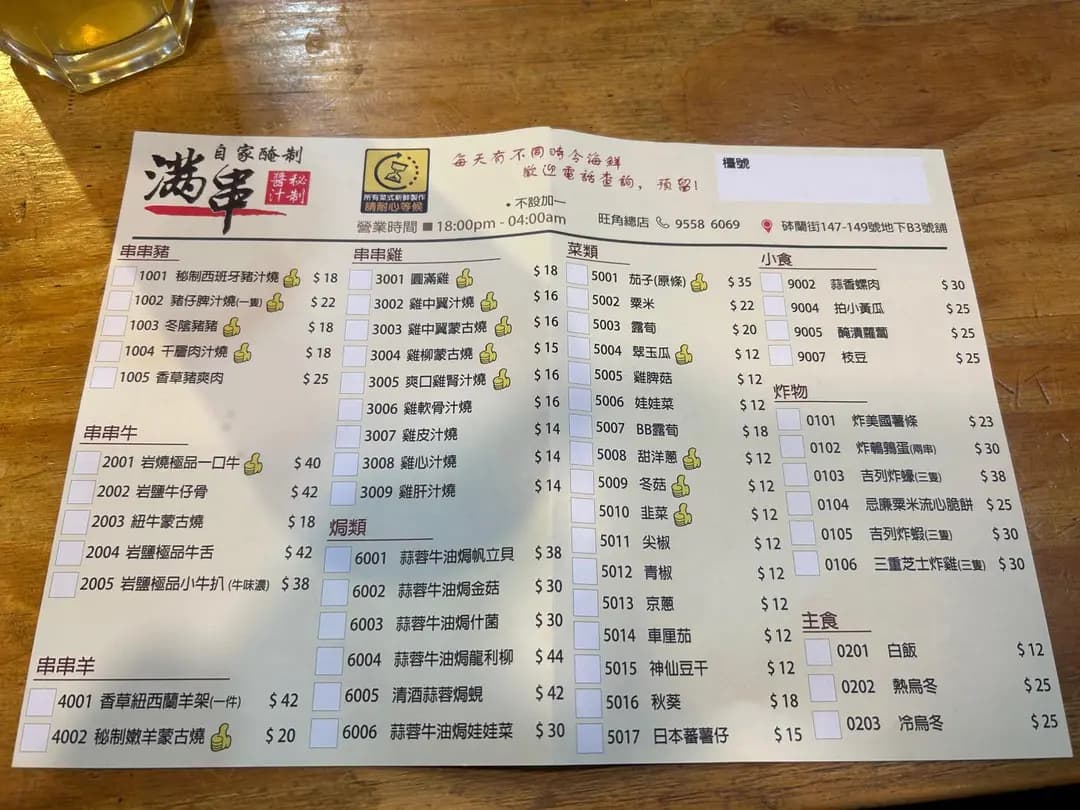 滿串
自家醃制
秘制醬汁
所有菜式新鮮製作
請耐心等候
每天有不同時令海鮮
歡迎電話查詢，預留!
• 不設加一
營業時間 ■ 18:00pm - 04:00am
旺角總店 9558 6069
砵蘭街147-149號地下B3號舖
檯號
串串豬
1001 秘制西班牙豬汁燒 $ 18
1002 豬仔脾汁燒(一隻) $ 22
1003 冬陰豬豬 $ 18
1004 千層肉汁燒 $ 18
1005 香草豬爽肉 $ 25
串串牛
2001 岩燒極品一口牛 $ 40
2002 岩鹽牛仔骨 $ 42
2003 紐牛蒙古燒 $ 18
2004 岩鹽極品牛舌 $ 42
2005 岩鹽極品小牛扒 (牛味濃) $ 38
串串羊
4001 香草紐西蘭羊架(一件) $ 42
4002 秘制嫩羊蒙古燒 $ 20
串串雞
3001 圓滿雞 $ 18
3002 雞中翼汁燒 $ 16
3003 雞中翼蒙古燒 $ 16
3004 雞柳蒙古燒 $ 15
3005 爽口雞腎汁燒 $ 16
3006 雞軟骨汁燒 $ 16
3007 雞皮汁燒 $ 14
3008 雞心汁燒 $ 14
3009 雞肝汁燒 $ 14
焗類
6001 蒜蓉牛油焗帆立貝 $ 38
6002 蒜蓉牛油焗金菇 $ 30
6003 蒜蓉牛油焗什菌 $ 30
6004 蒜蓉牛油焗龍利柳 $ 44
6005 清酒蒜蓉焗蜆 $ 42
6006 蒜蓉牛油焗娃娃菜 $ 30
菜類
5001 茄子(原條) $ 35
5002 粟米 $ 22
5003 露荀 $ 20
5004 翠玉瓜 $ 12
5005 雞脾菇 $ 12
5006 娃娃菜 $ 12
5007 BB露荀 $ 18
5008 甜洋蔥 $ 12
5009 冬菇 $ 12
5010 韭菜 $ 12
5011 尖椒 $ 12
5012 青椒 $ 12
5013 京蔥 $ 12
5014 車厘茄 $ 12
5015 神仙豆干 $ 12
5016 秋葵 $ 18
5017 日本蕃薯仔 $ 15
小食
9002 蒜香螺肉 $ 30
9004 拍小黃瓜 $ 25
9005 醃漬蘿蔔 $ 25
9007 枝豆 $ 25
炸物
0101 炸美國薯條 $ 23
0102 炸鵪鶉蛋(兩串) $ 30
0103 吉列炸蠔(三隻) $ 38
0104 忌廉粟米流心脆餅 $ 25
0105 吉列炸蝦(三隻) $ 30
0106 三重芝士炸雞(三隻) $ 30
主食
0201 白飯 $ 12
0202 熱烏冬 $ 25
0203 冷烏冬 $ 25